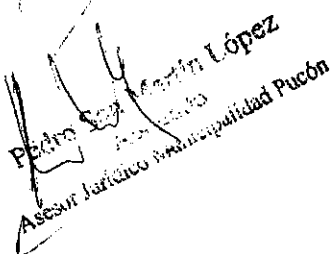 Pedro San Martín López
Abogado
Asesor Jurídico Municipalidad Pucón